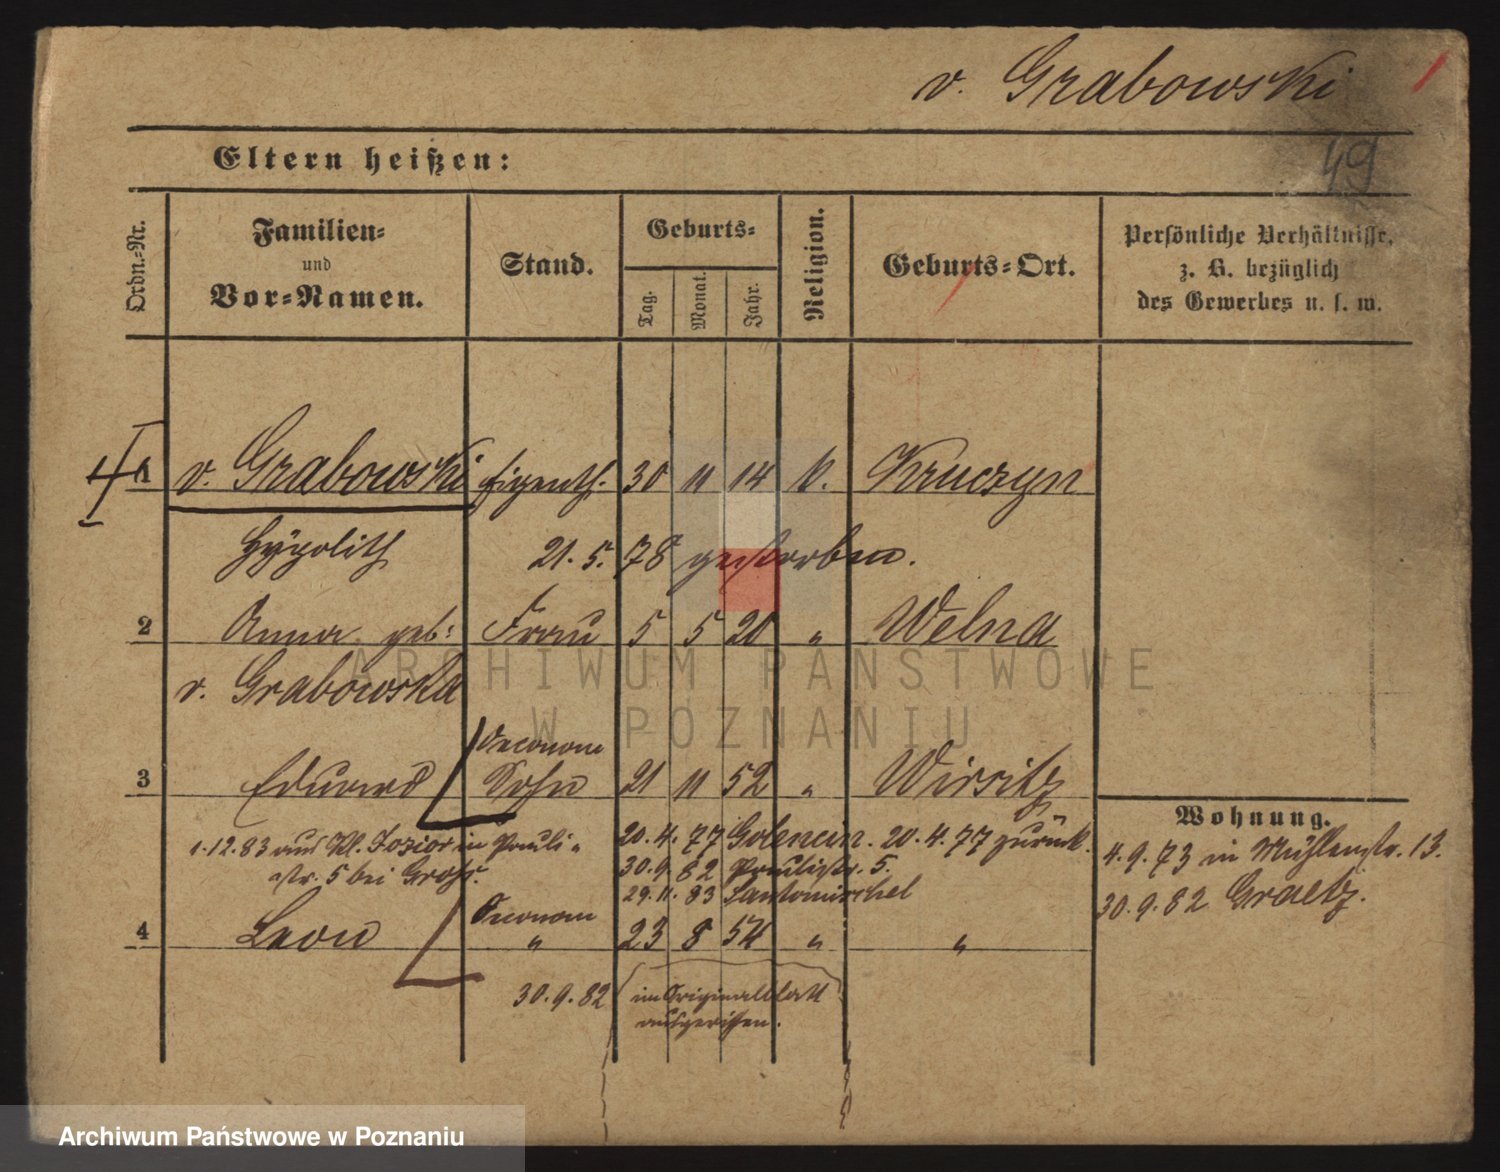 v. Grabowski
49
Eltern heißen:
Ordn.-Nr.
Familien- und Vor-Namen.
Stand.
Geburts-
Tag.
Monat.
Jahr.
Religion.
Geburts-Ort.
Persönliche Verhältnisse,
z. B. bezüglich
des Gewerbes u. s. w.
1 v. Grabowski Eigenth. 30 11 14 k. Kruczyn
Hypolith 21. 5. 78 gestorben.
2 Anna geb: Frau 5 5 20 " Welna
v. Grabowska
Oeconom
3 Eduard Sohn 21 11 52 " Wirsitz
Wohnung.
4.9.73 in Mühlenstr. 13.
30.9.82 Graetz.
20.4.77 Golencin. 20.4.77 zurück.
1.12.83 aus Kl. in Pauli-
30.9.82 Paulistr. 5.
str. 5 bei
29.11.83 Santomischel
Oeconom
4 Leon " 23 8 54 " "
30.9.82 im Originalblatt
ausgerissen.
ARCHIWUM PAŃSTWOWE
W POZNANIU
Archiwum Państwowe w Poznaniu